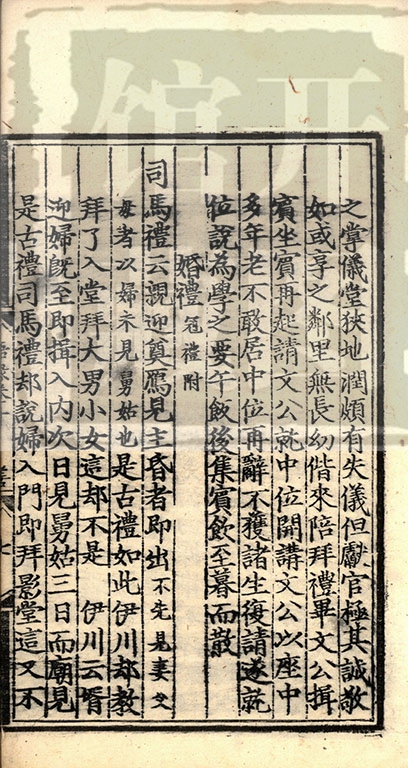 之掌儀堂狹地潤頗有失儀但獻官極其誠敬
如或享之鄰里無長幼偕來陪拜禮畢文公揖
賓坐賓再起請文公就中位開講文公以座中
多年老不敢居中位再辭不獲諸生復請遂就
位說為學之要午飯後集賓飲至暮而散
婚禮冠禮附
司馬禮云親迎奠鴈見主昏者即出不先見妻父
母者以婦未見舅姑也是古禮如此伊川却教
拜了入堂拜大男小女這却不是 伊川云壻
迎婦既至即揖入內次日見舅姑三日而廟見
是古禮司馬禮却說婦入門即拜影堂這又不